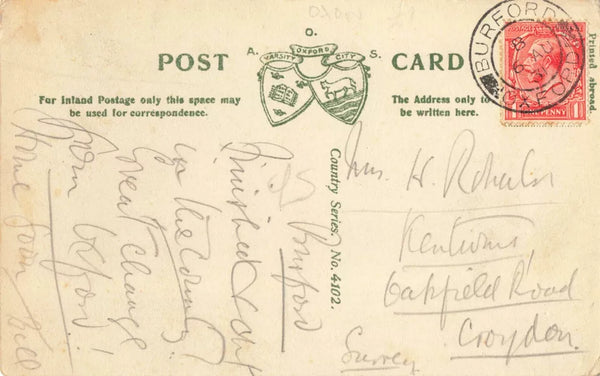 OXON £1
POST CARD
A. O. S.
VARSITY OXFORD CITY
For Inland Postage only this space may
be used for correspondence.
The Address only to
be written here.
Printed abroad.
BURFORD
OXFORD
Country Series. No. 4102.
Burford
Finished
in the County
great change
from Oxford!
Home Soon Bill
Mrs. H.
Oakfield Road
Croydon.
Surrey